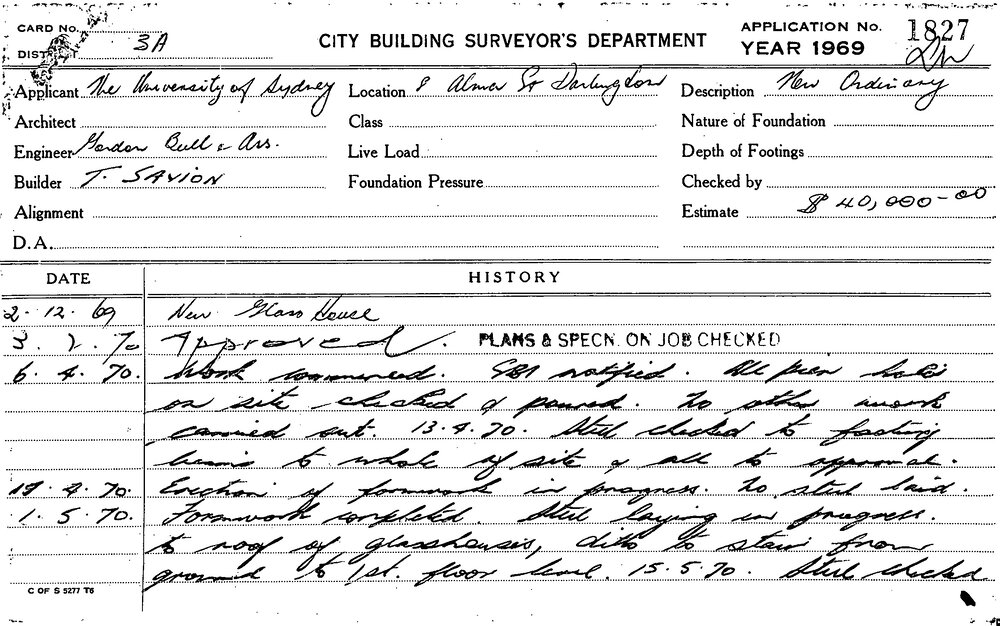 CARD No.
DISTRICT 3A
CITY BUILDING SURVEYOR'S DEPARTMENT
APPLICATION No. 1827
YEAR 1969
Applicant The University of Sydney Location 8 Alma St Darlington Description New Ordinary
Architect Class Nature of Foundation
Engineer Gordon Bull & Ass. Live Load Depth of Footings
Builder T. SAVION Foundation Pressure Checked by
Alignment Estimate $40,000-00
D.A.
DATE HISTORY
2.12.69 New Glass House
3.2.70 Approved. PLANS & SPECN. ON JOB CHECKED
6.4.70. Work commenced. notified. All pier holes
on site checked & poured. No other work
carried out. 13.4.70. Steel checked to footing
beams to whole of site & all to approval.
19.4.70. Erection of formwork in progress. No steel laid.
1.5.70. Formwork completed. Steel laying in progress.
to roof of glasshouses, ditto to stair from
ground to 1st. floor level. 15.5.70. Steel checked
C OF S 5277 T6